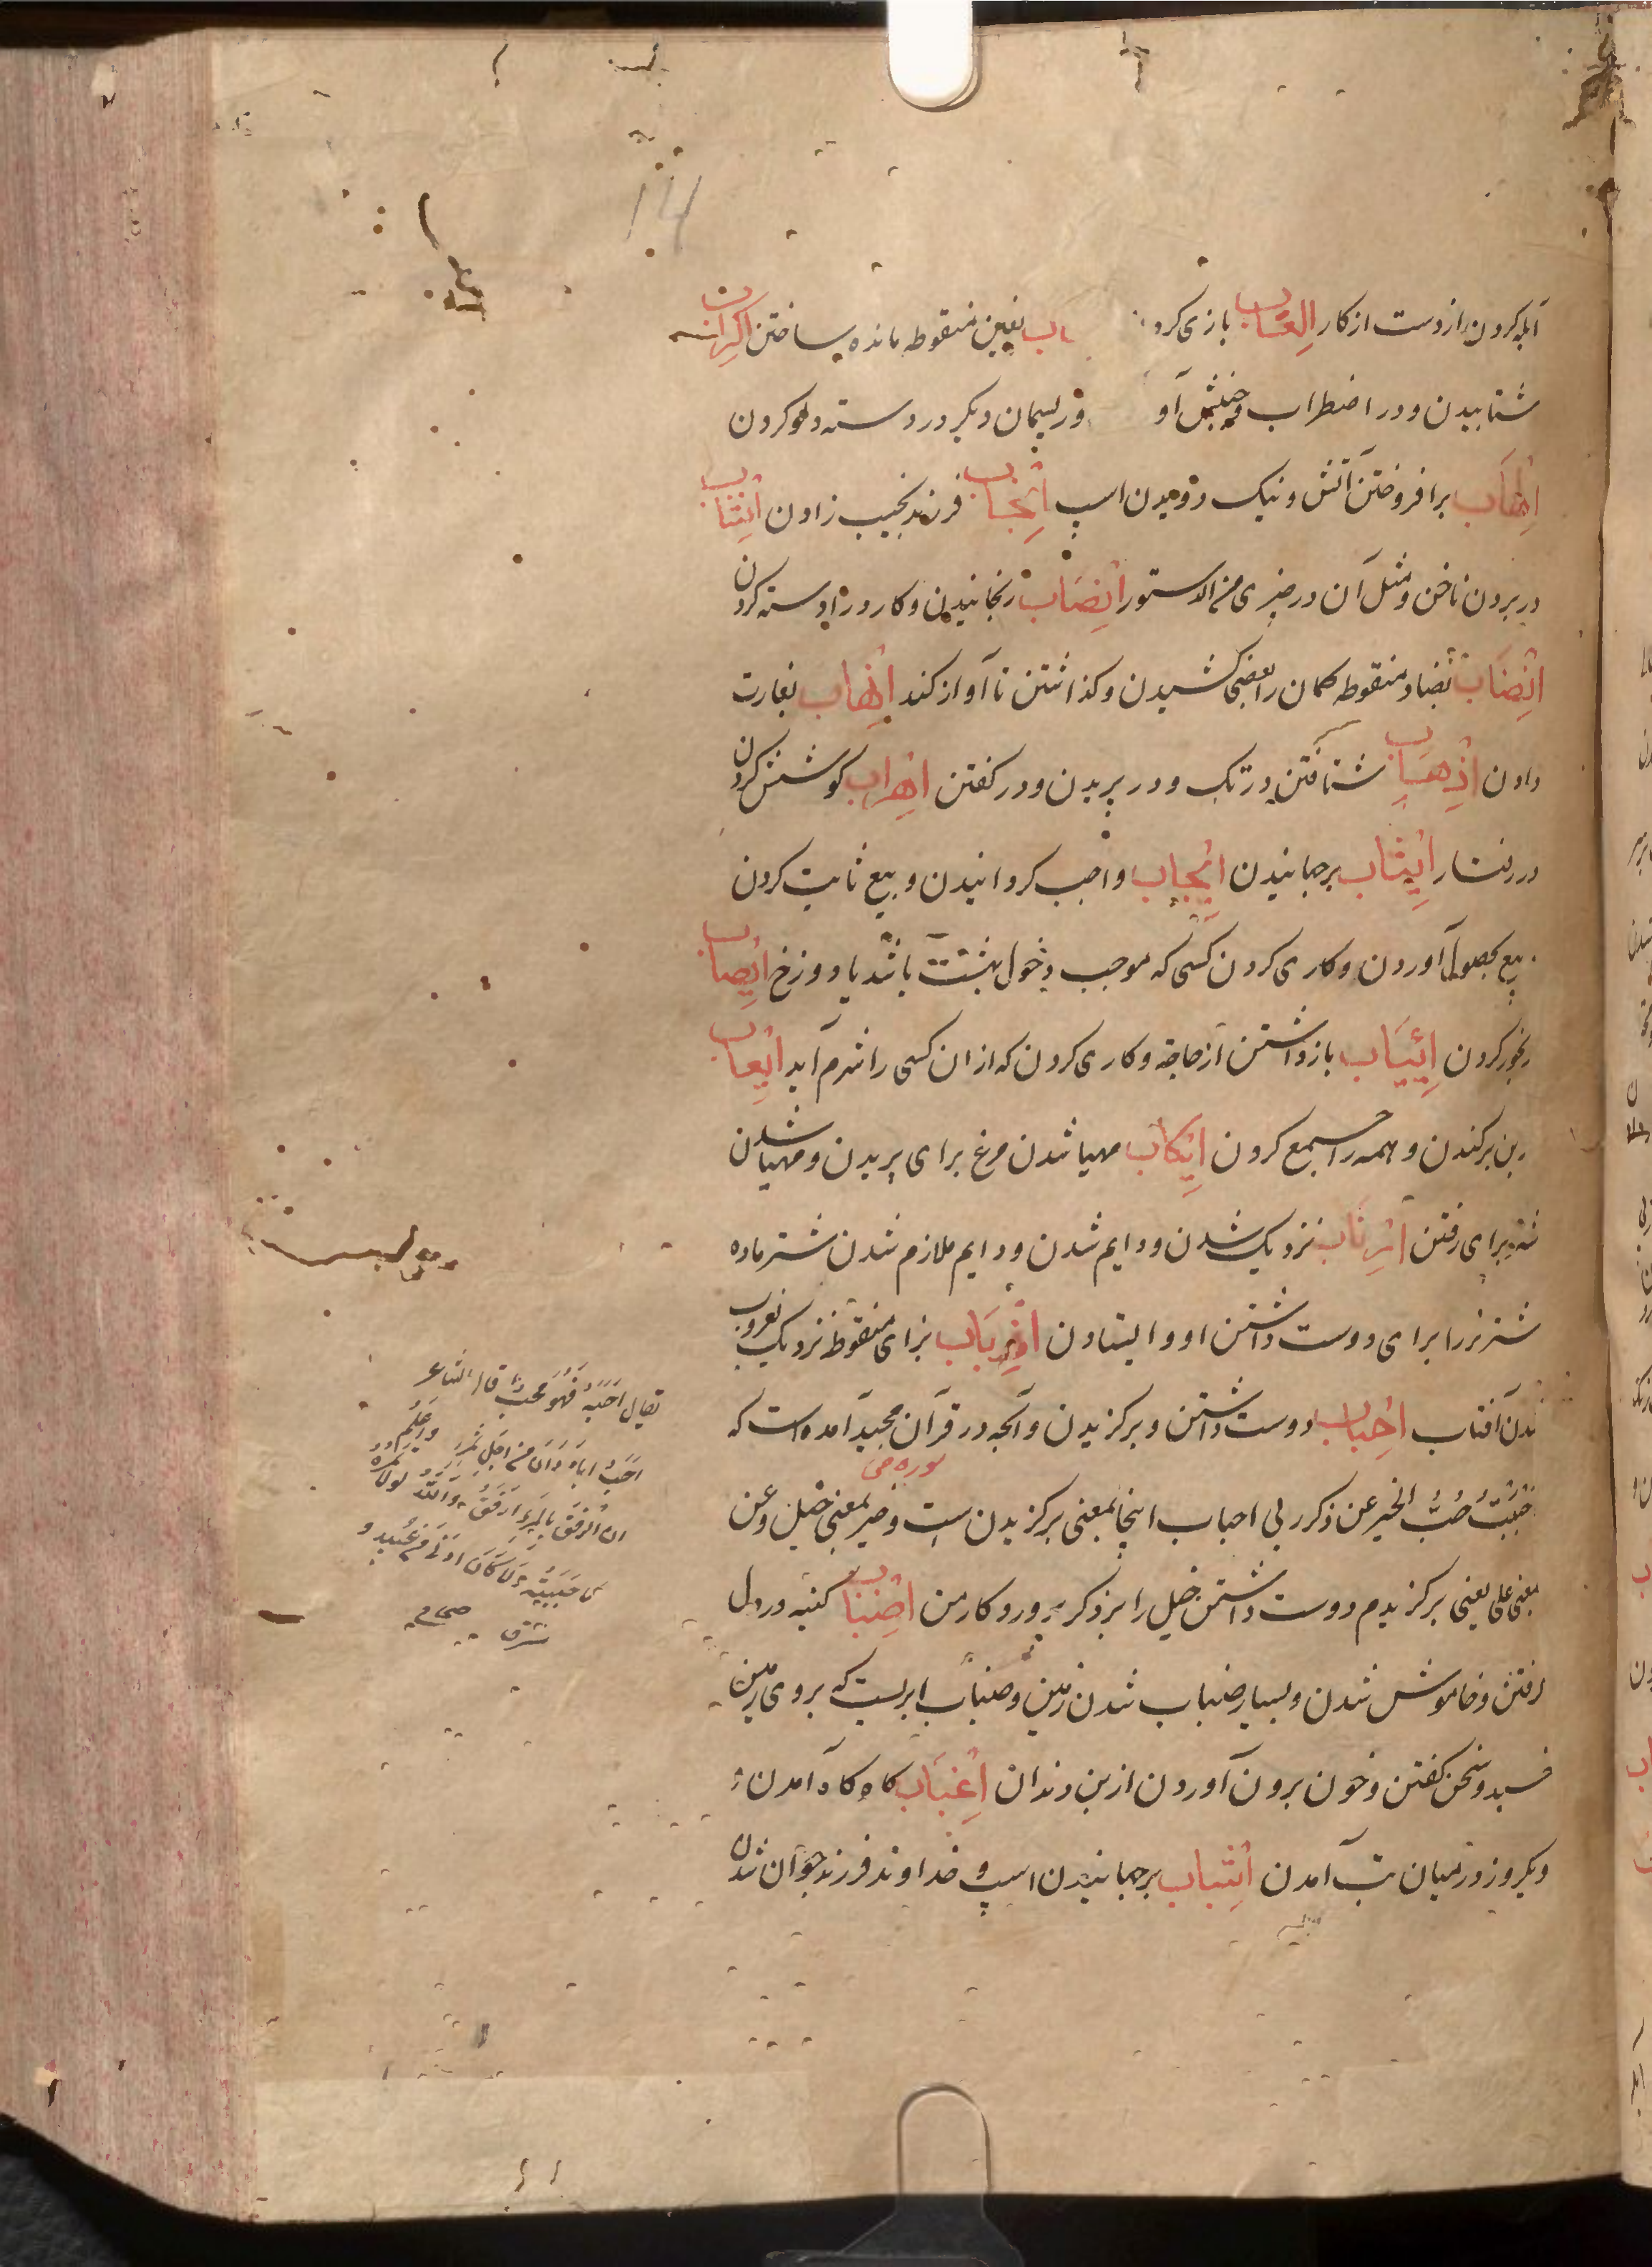 14
آبله کردن از دست از کار اِلعَاب بازی کرد اب بغین منقوطه مانده ساختن اِکرَاب
شتابیدن و در اضطراب و جنبش آو و ریسمان دیگر در دسته دلو کردن
اِلهَاب برافروختن آتش و نیک دویدن اسپ اِنجَاب فرزند نجیب زادن اِنشَاب
در بردن ناخن و مثل آن در چیزی اِنصَاب رنجانیدن و کارد را دسته کردن
اِنضَاب بضاد منقوطه کمان را کشیدن و گذاشتن تا آواز کند اِنهَاب بغارت
دادن اِهذَاب شتافتن در تک و در پریدن و در گفتن اِهرَاب کوشش کردن
در رفتار اِیثَاب برجهانیدن اِیجَاب واجب گردانیدن و بیع ثابت کردن
بیع بحصول آوردن و کاری کردن کسی که موجب دخول بهشت باشد یا دوزخ اِیصَاب
رنجور کردن اِیئَاب بازداشتن از حاجة و کاری کردن که از ان کسی را شرم آید اِیعَاب
بن برکندن و همه را جمع کردن اِیکَاب مهیا شدن مرغ برای پریدن و مهیا شدن
برای رفتن اِربَاب نزدیک شدن و دایم شدن و دایم ملازم شدن شتر ماده
شتر نر را برای دوست داشتن او و ایستادن اِزبَاب بزای منقوطه نزدیک بغروب
شدن آفتاب اِحبَاب دوست داشتن و برگزیدن و آنچه در قرآن مجید آمده است که
سوره ص
احببت حُبُّ الخیر عن ذکر ربی احباب اینجا بمعنی برگزیدن است و خیر بمعنی خیل و عن
بمعنی علی یعنی برگزیدم دوست داشتن خیل را بر ذکر پروردگار من اِضبَاب کنیه در دل
گرفتن و خاموش شدن و بسیار ضباب شدن زمین و ضباب ابریست که بروی زمین
سخن گفتن و خون برون آوردن از بن دندان اِغبَاب گاه گاه آمدن
و یکروز در میان تب آمدن اِشبَاب برجهانیدن اسپ و خداوند فرزند جوان شدن
یقال اَحَبَّهُ فهو مُحِبٌّ قال الشاعر
اُحِبُّ اباه مِن اجل تمره واعلم
ان الرفق بالمرء ارفق و والله لولا تمره
ما حببته ولا کان ادنی من عبید و
مشرق صحاح